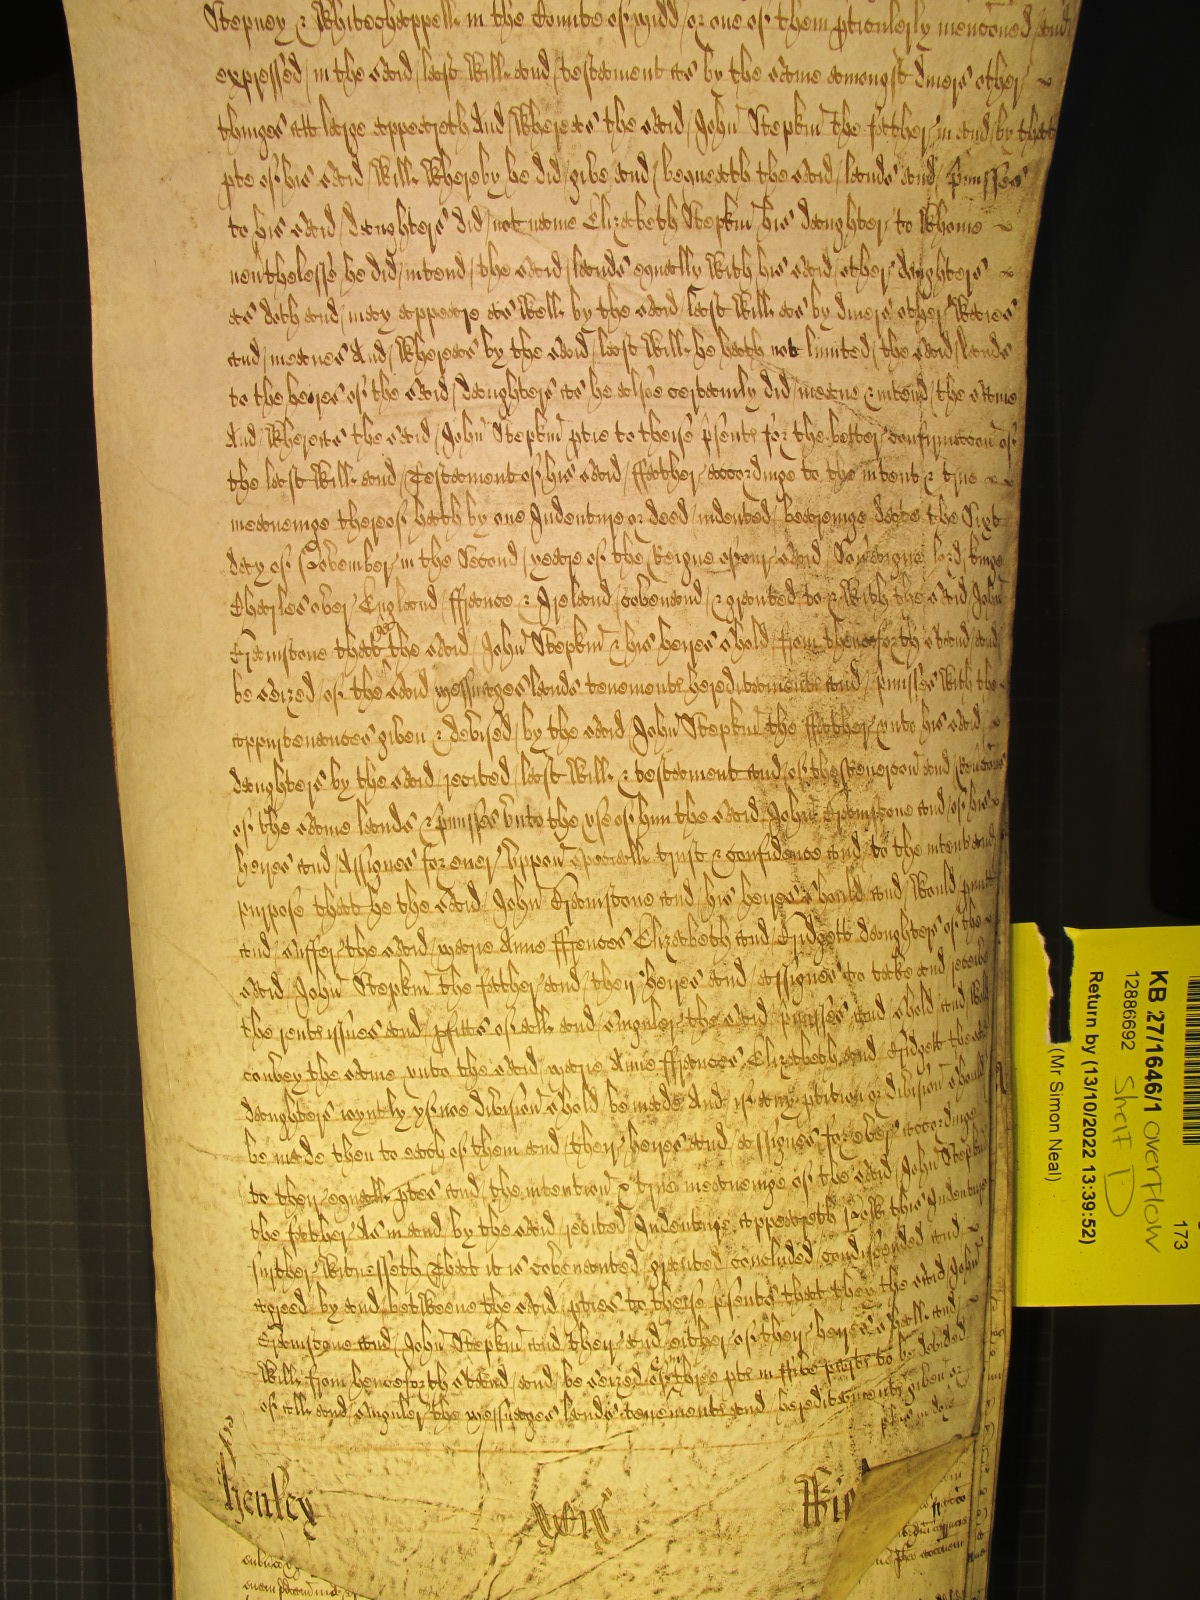 Stepney & Whitechappell in the Countie of Midd or one of them pticulerly menconed and
expressed in the said last Will and testament as by the same amongst divers other
thinges att large appeareth And Whereas the said John Stepkin the father in and by that
pte of his said Will Whereby he did give and bequeath the said lands and pmisses
to his said daughters did not name Elizabeth Stepkin his daughter to Whome
nevthelesse he did intend the said lands equally With his said other daughters
as doth and may appeare as Well by the said last Will as by divers other Waies
and meanes And Whereas by the said last Will he hath not limited the said lands
to the heires of the said daughters as he alsoe certainly did meane & intend the same
And Whereas the said John Stepkin ptie to theise psents for the better confirmacon of
the last Will and Testament of his said ffather accordinge to the intent & true
meaneinge thereof hath by one Indenture or deed indented beareinge date the Sixt
day of November in the Second yeare of the Reigne of our said Soveraigne lord kinge
Charles over England ffrance & Ireland covenand & granted to & With the said John
Gramstone that he the said John Stepkin & his heires shold from thenceforth stand and
be seized of the said messuages lands tenements hereditaments and pmisses With the
appurtenances given & devised by the said John Stepkin the ffather unto his said
daughters by the said recited last Will & testament and of the revercon and revercons
of the same lands & pmisses unto the use of him the said John Gramstone and of his
heires and Assignes for ever Uppon speciall trust & confidence and to the intent and
purpose that he the said John Gramstone and his heires should and Would pmitt
and suffer the said Marie Anne ffrances Elizabeth and Bridgett daughters of the
said John Stepkin the father and their heires and assignes to take and receive
the rents issues and pfitts of all and singuler the said pmisses and shold and Wold
convey the same unto the said Marie Anne ffrances Elizabeth and Bridgett the said
daughters joyntly yf noe division shold be made And if any ptition or division should
be made then to each of them and their heires and assignes for ever accordinge
to their equall ptes and the intention & true meaneinge of the said John Stepkin
the father As in and by the said recited Indenture appeareth Now this Indenture
further Witnesseth That it is covenanted granted concluded condiscended and
agreed by and betweene the said pties to theise psents that they the said John
Gramstone and John Stepkin and their and either of their heires shall and
Will from henceforth stand and be seized of three pts in ffive parts to be devided
of all and singuler the messuages lands tenements and hereditaments given or
henley
KB 27/1646/1 overflow
12886692 Shelf D
Return by (13/10/2022 13:39:52)
(Mr Simon Neal)
173